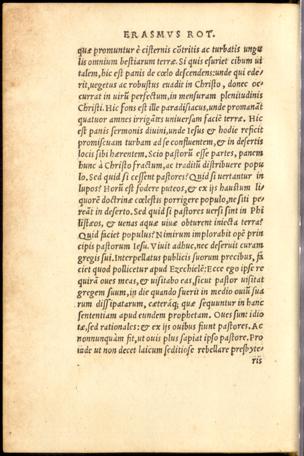 ERASMVS ROT.
quæ promuntur è cisternis cōtritis ac turbatis ungu
lis omnium bestiarum terræ. Si quis esuriet cibum ui
talem, hic est panis de cœlo descendens: unde qui ede-
rit, uegetus ac robustus euadit in Christo, donec oc-
currat in uirū perfectum, in mensuram plenitudinis
Christi. Hic fons est ille paradisiacus, unde promanāt
quatuor amnes irrigātes uniuersam faciē terræ. Hic
est panis sermonis diuini, unde Iesus & hodie reficit
promiscuam turbam ad se confluentem, & in desertis
locis sibi hærentem. Scio pastorū esse partes, panem
hunc à Christo fractum, ac traditū distribuere popu
lo. Sed quid si cessent pastores? Quid si uertantur in
lupos? Horū est fodere puteos, & ex ijs haustum li
quorē doctrinæ cœlestis porrigere populo, ne siti pe
reāt in deserto. Sed quid si pastores uersi sint in Phi
listæos, & uenas aquæ uiuæ obturent iniecta terra?
Quid faciet populus? Nimirum implorabit opē prin
cipis pastorum Iesu. Viuit adhuc, nec deseruit curam
gregis sui. Interpellatus publicis suorum precibus, fa
ciet quod pollicetur apud Ezechielē: Ecce ego ipse re
quirā oues meas, & uisitabo eas, sicut pastor uisitat
gregem suum, in die quando fuerit in medio ouiū sua
rum dissipatarum, cæteráq; quæ sequuntur in hanc
sententiam apud eundem prophetam. Oues sunt: idio
tæ, sed rationales: & ex ijs ouibus fiunt pastores. Ac
nonnunquàm fit, ut ouis plus sapiat ipso pastore. Pro
inde ut non decet laicum seditiose rebellare presbyte-
ris